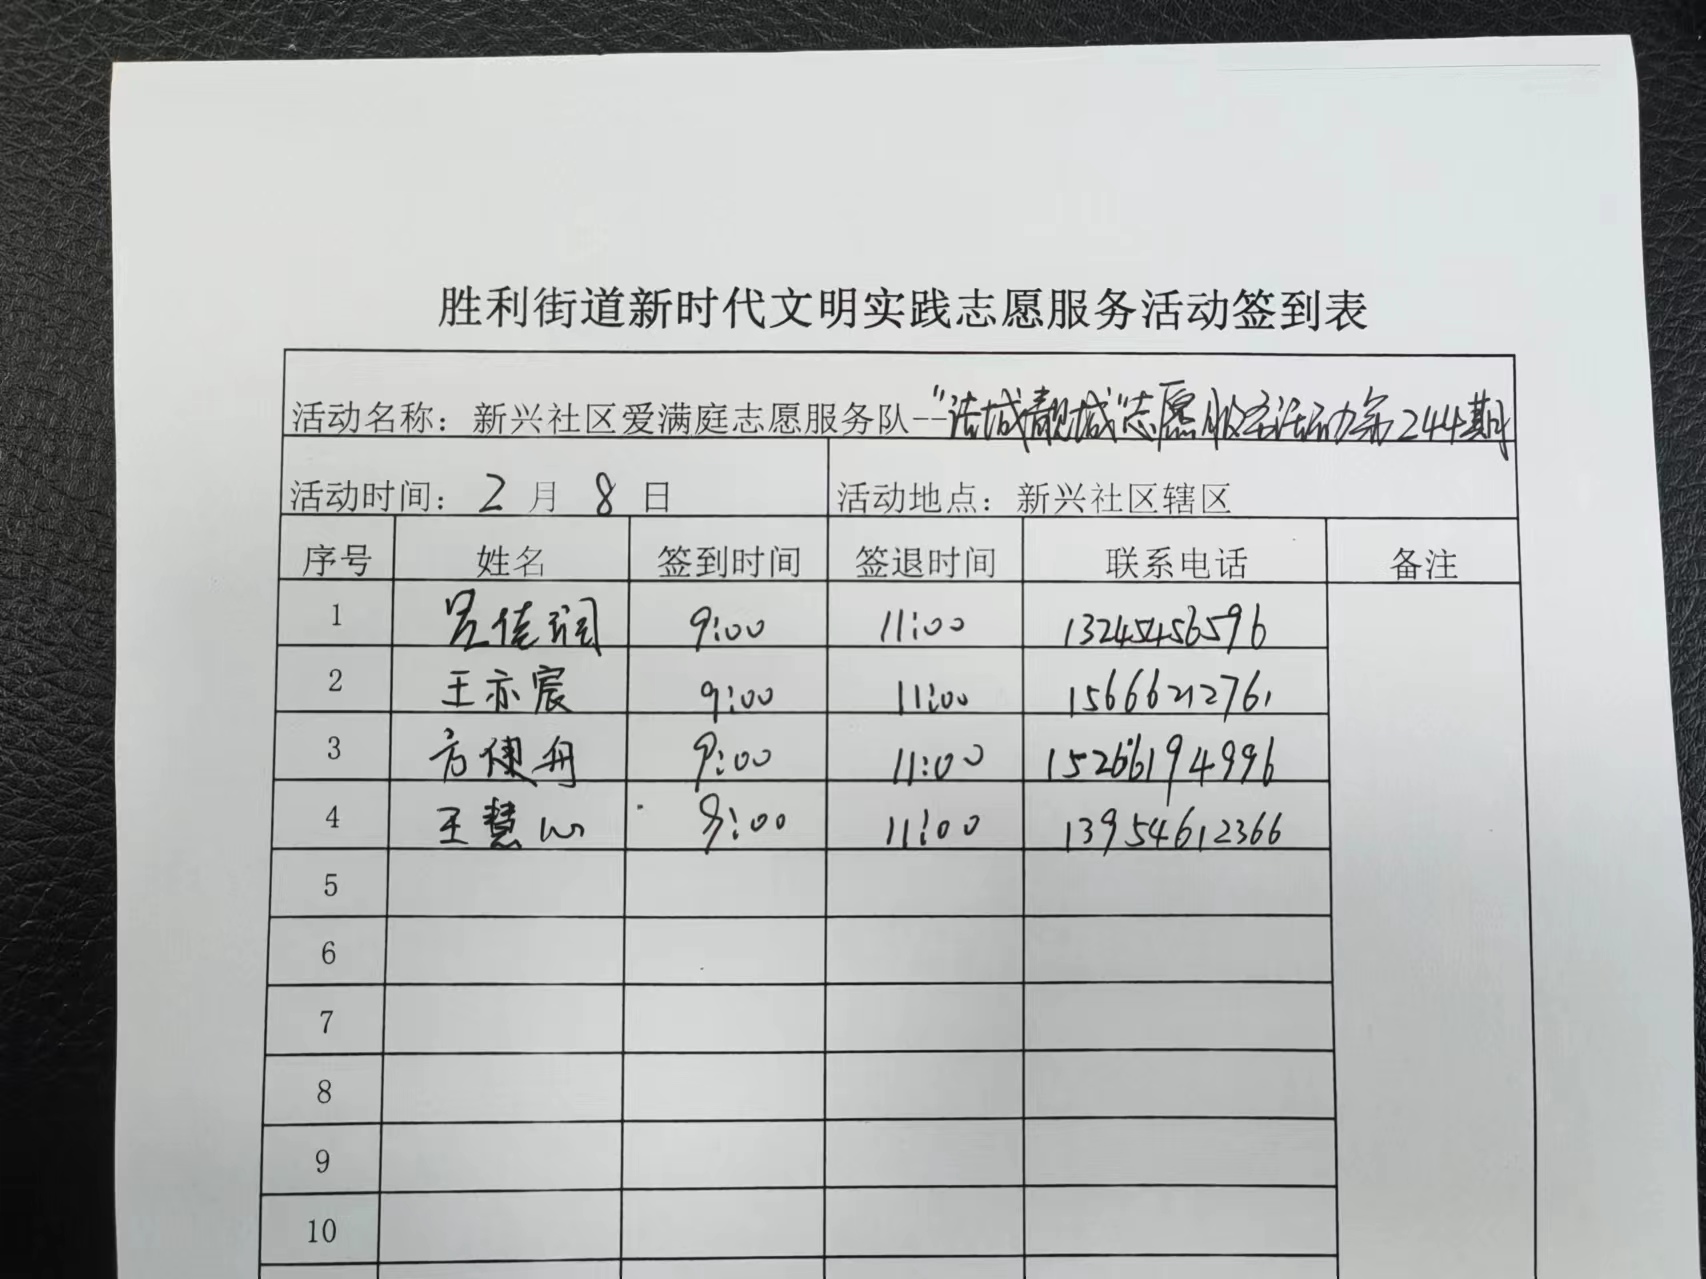 胜利街道新时代文明实践志愿服务活动签到表
活动名称：新兴社区爱满庭志愿服务队--"洁城靓城"志愿服务活动第244期
活动时间：2月8日 活动地点：新兴社区辖区
序号 姓名 签到时间 签退时间 联系电话 备注
1 佳润 9:00 11:00 13245456596
2 王亦宸 9:00 11:00 15666212761
3 方便舟 9:00 11:00 15266194996
4 王慧心 9:00 11:00 13954612366
5
6
7
8
9
10